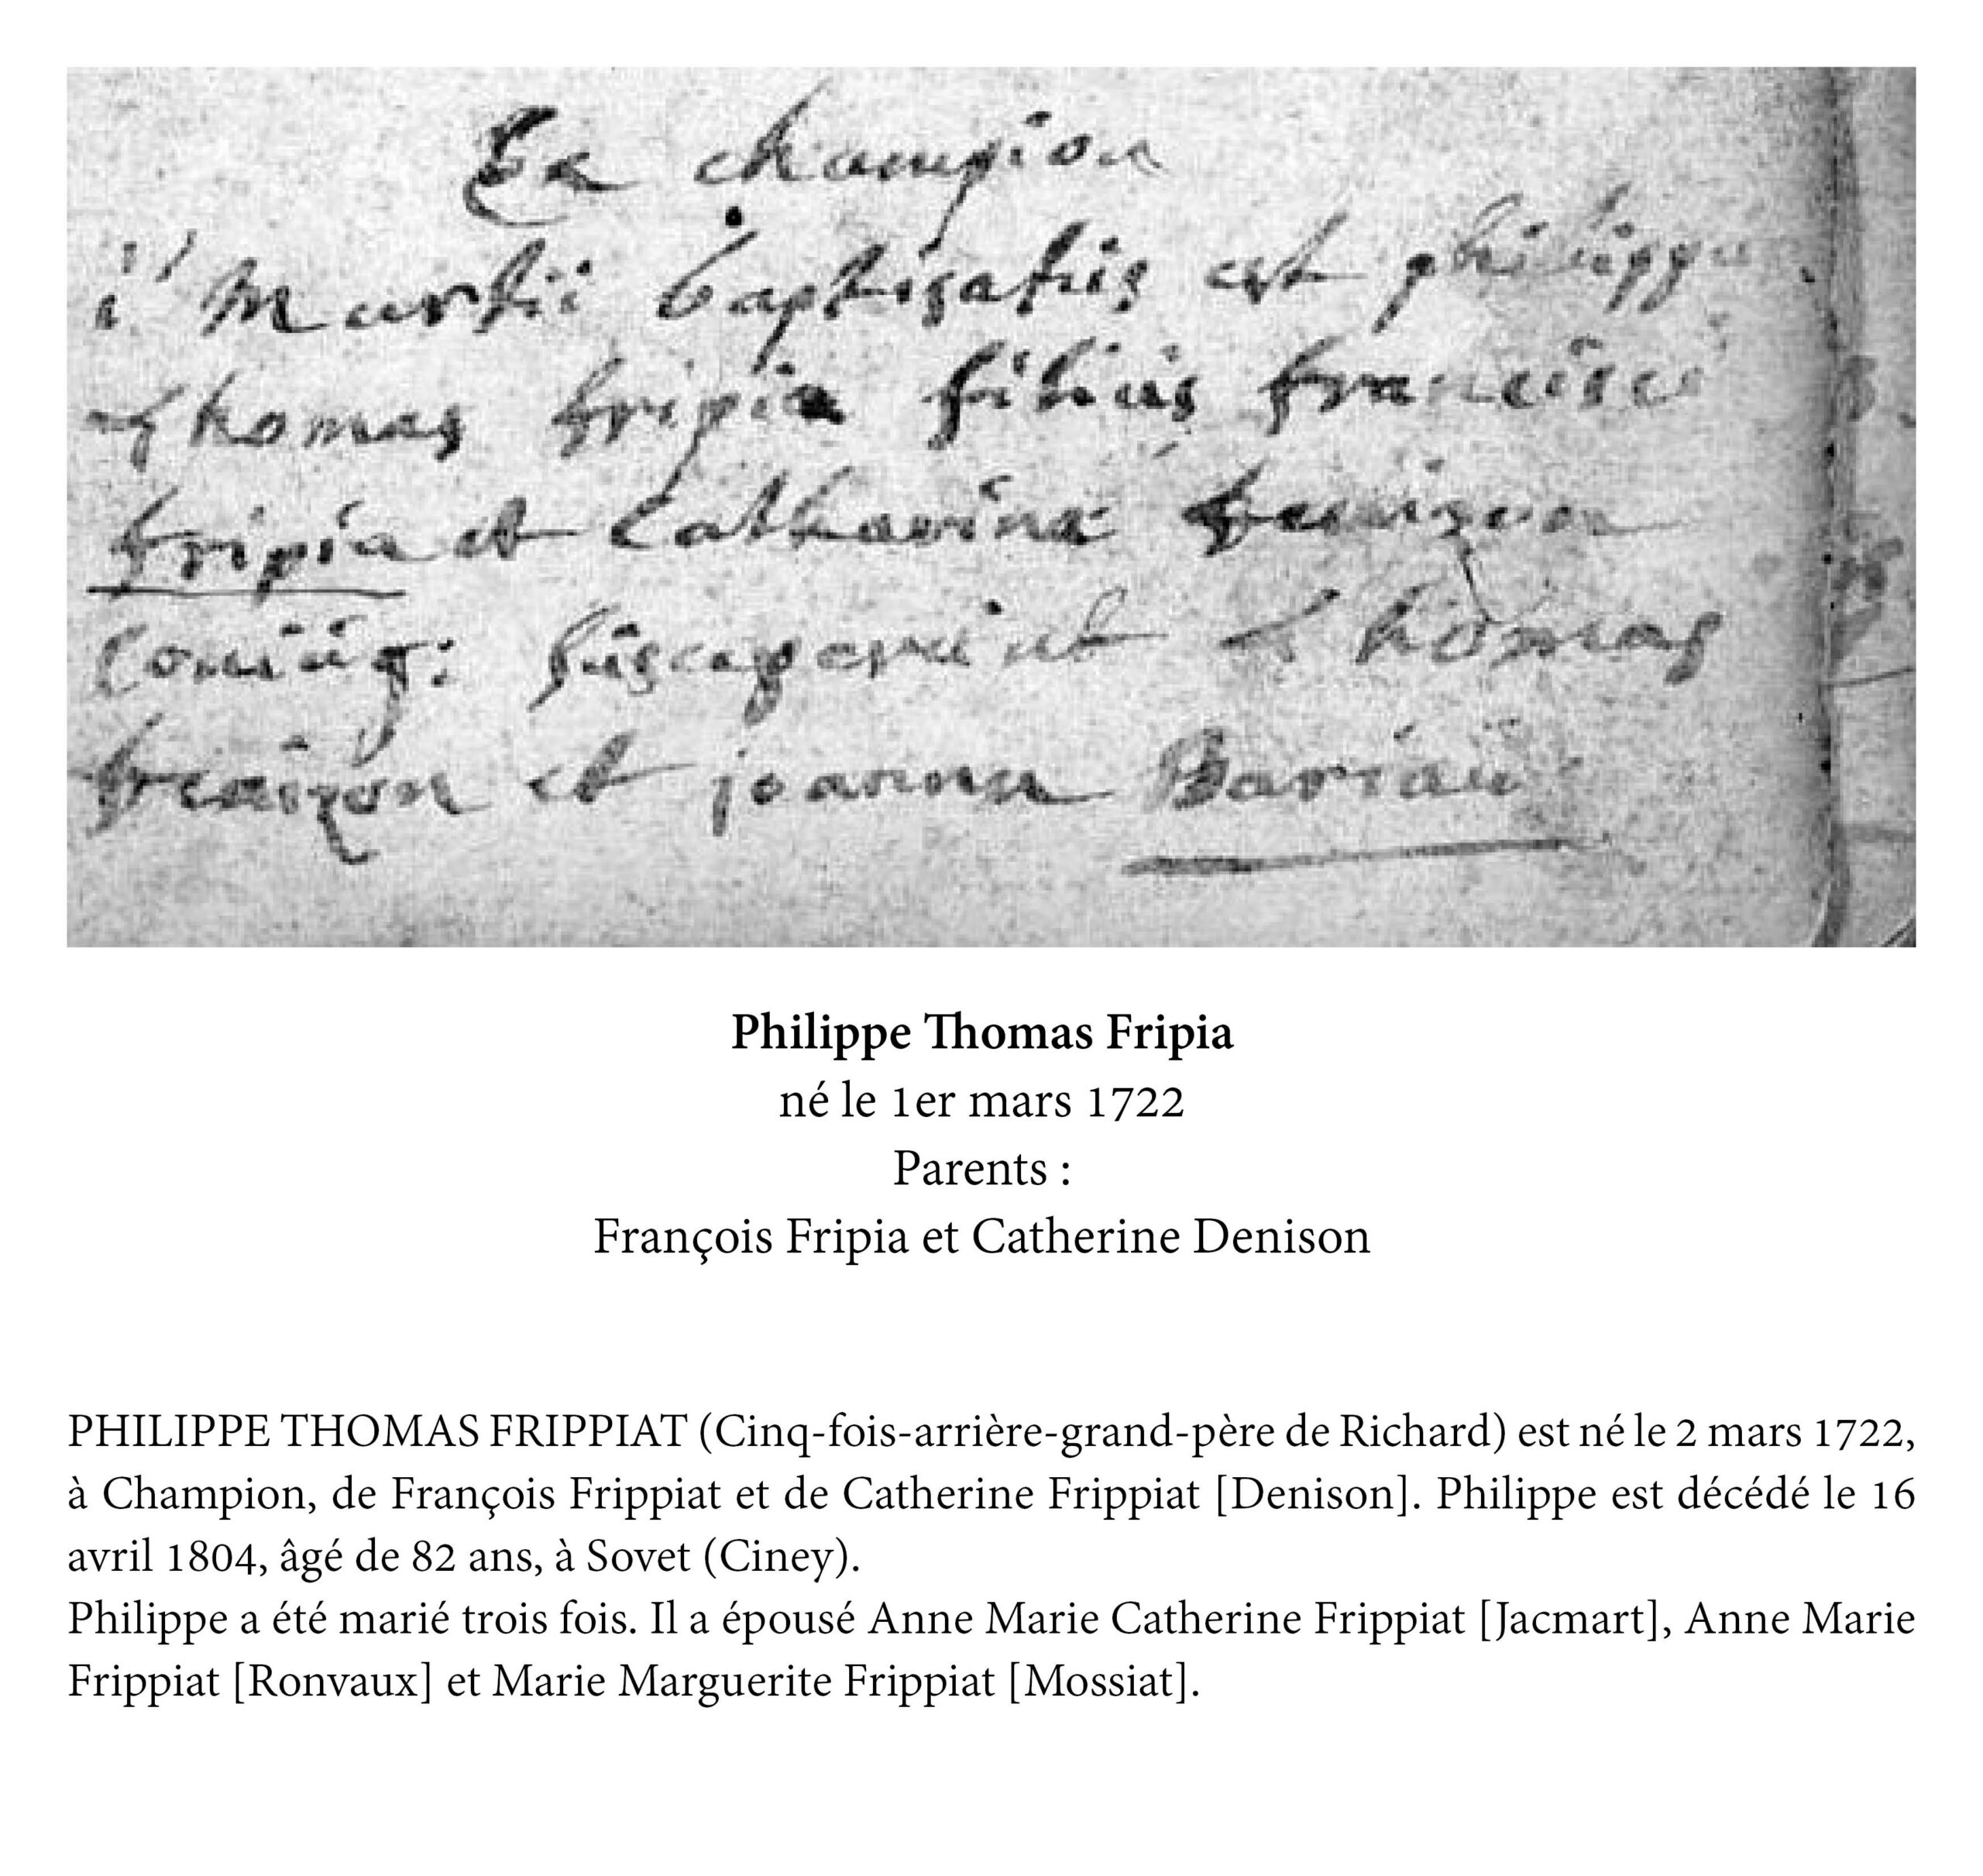 Ex champion
1ª Martii baptisatus est philippu
thomas fripia filius francisci
fripia et Catharina
Coniug: susceperunt Thomas
et joanna Bariau
Philippe Thomas Fripia
né le 1er mars 1722
Parents :
François Fripia et Catherine Denison
PHILIPPE THOMAS FRIPPIAT (Cinq-fois-arrière-grand-père de Richard) est né le 2 mars 1722,
à Champion, de François Frippiat et de Catherine Frippiat [Denison]. Philippe est décédé le 16
avril 1804, âgé de 82 ans, à Sovet (Ciney).
Philippe a été marié trois fois. Il a épousé Anne Marie Catherine Frippiat [Jacmart], Anne Marie
Frippiat [Ronvaux] et Marie Marguerite Frippiat [Mossiat].